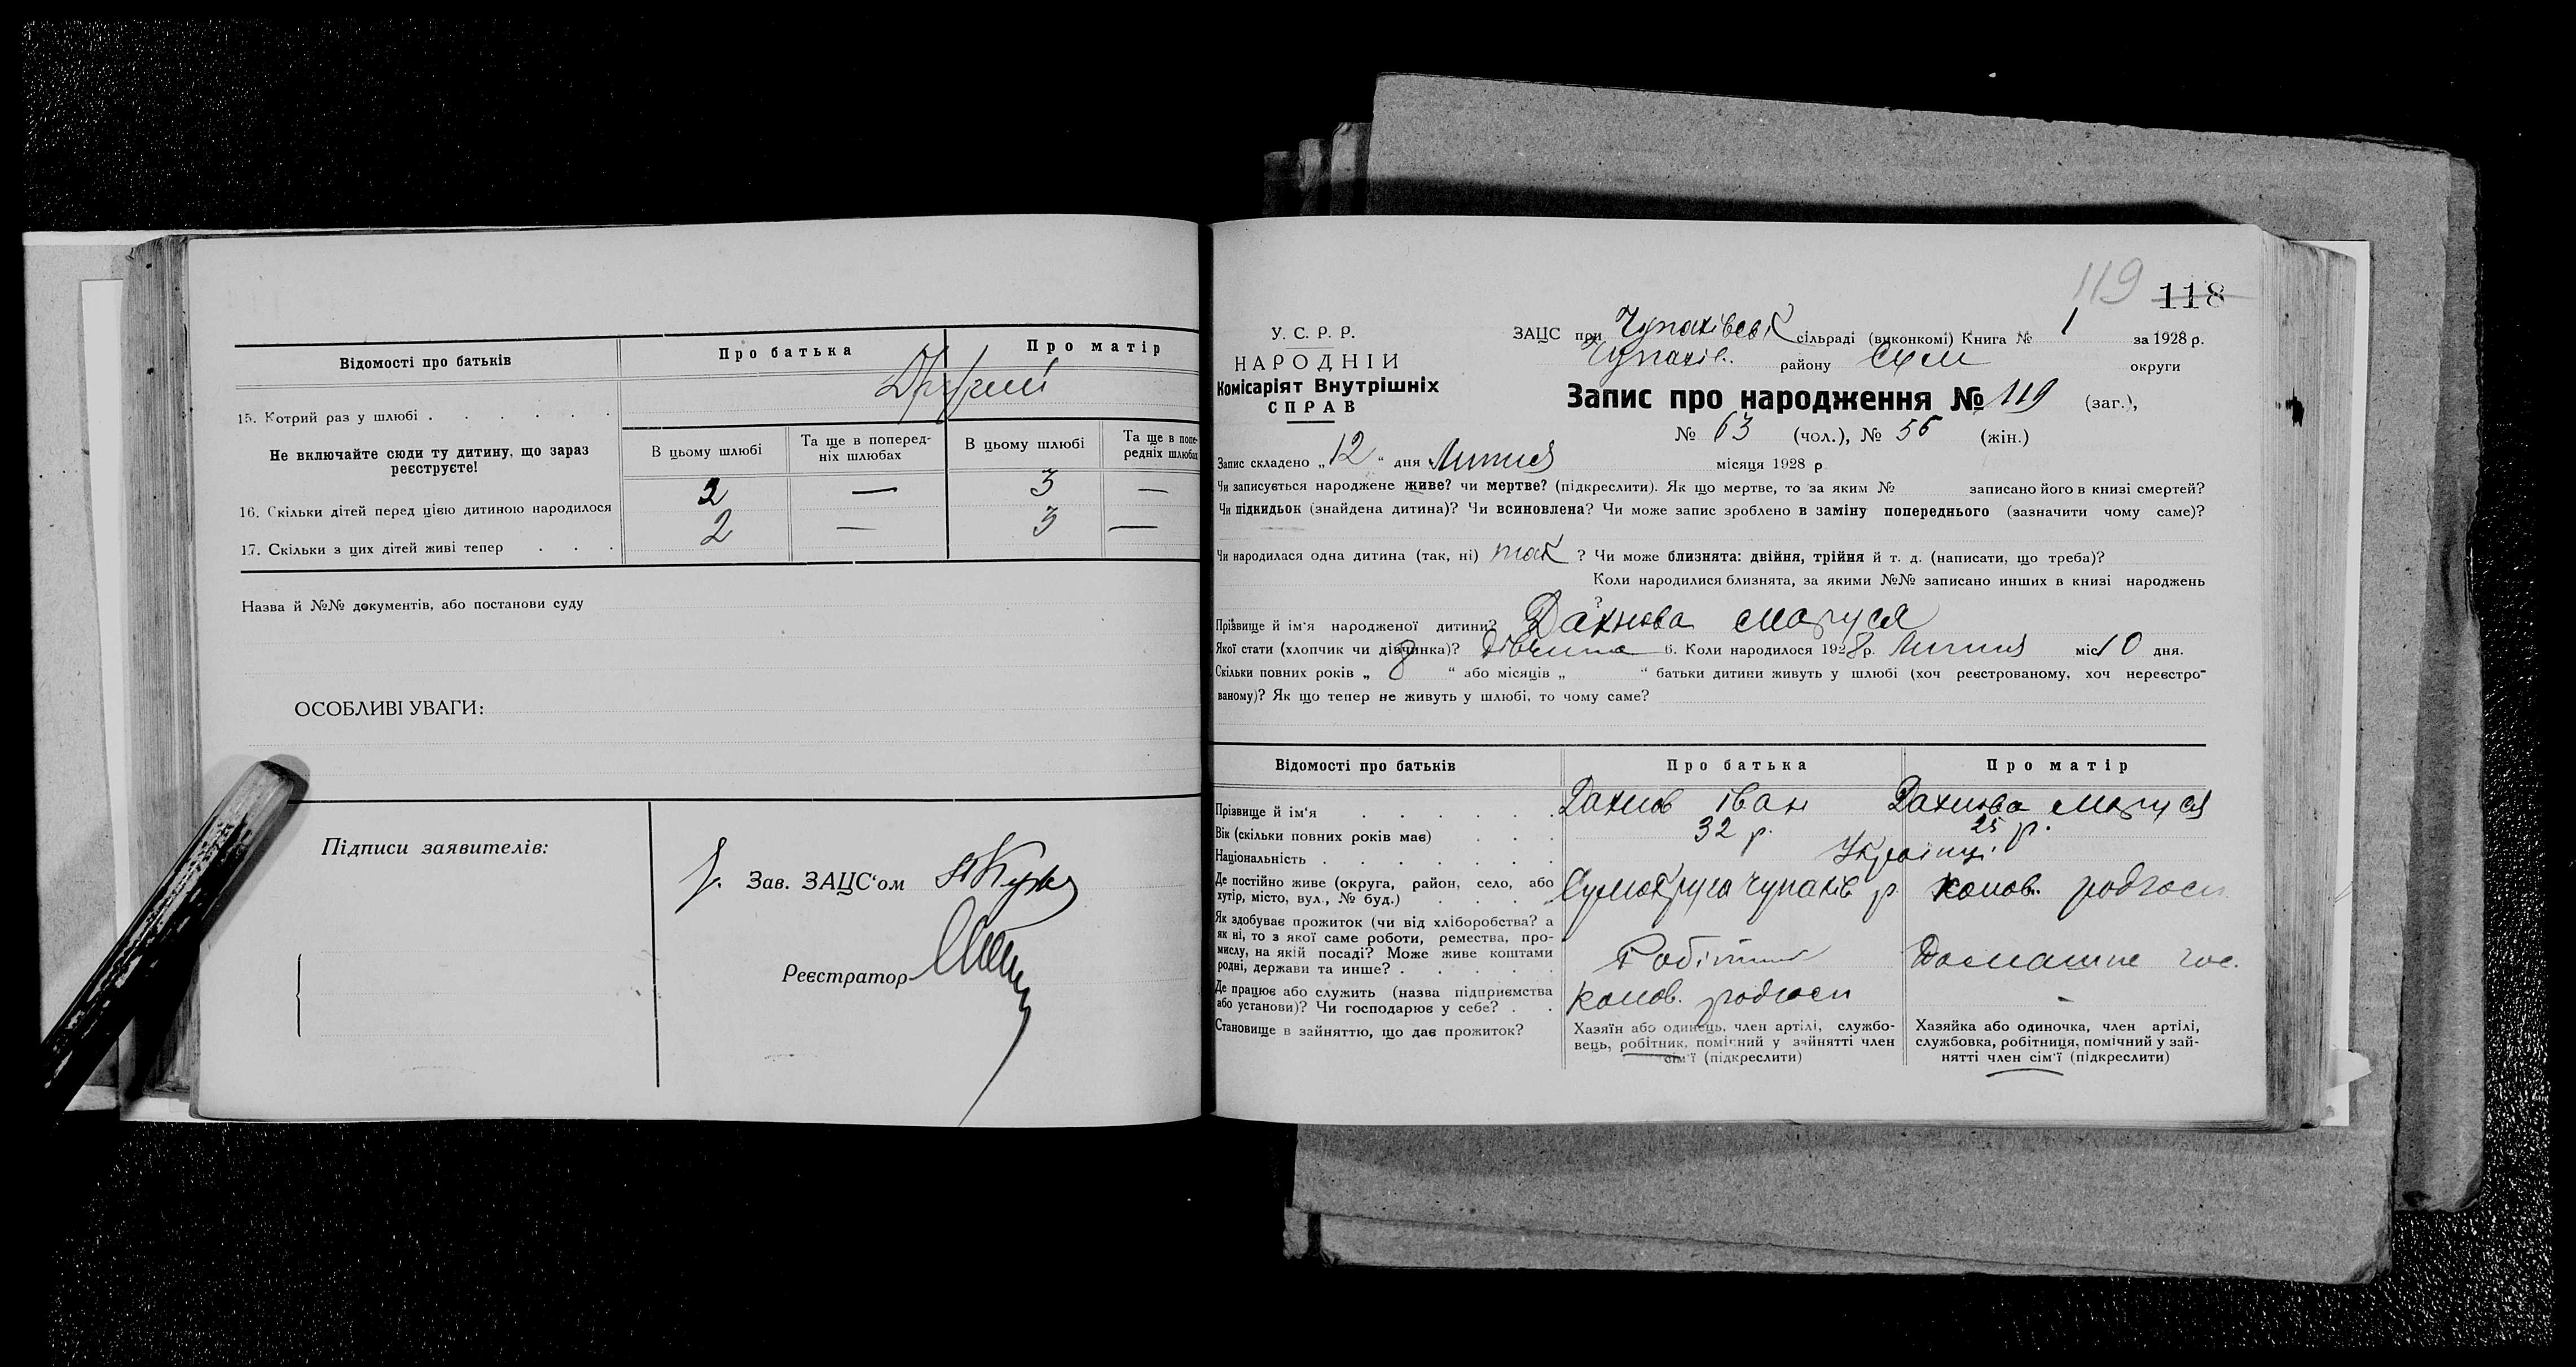 Відомості про батьків
Про батька
Про матір
15. Котрий раз у шлюбі . . . . . .
Другий
Не включайте сюди ту дитину, що зараз
реєструєте!
В цьому шлюбі
Та ще в поперед-
ніх шлюбах
В цьому шлюбі
Та ще в попе-
редніх шлюбах
16. Скільки дітей перед цією дитиною народилося
2 — 3 —
17. Скільки з цих дітей живі тепер . . .
2 — 3 —
Назва й №№ документів, або постанови суду
ОСОБЛИВІ УВАГИ:
Підписи заявителів:
Зав. ЗАЦС'ом
Реєстратор
119 118
У. С. Р. Р.
НАРОДНІЙ
Комісаріят Внутрішніх
СПРАВ
ЗАЦС при Чупахівськ сільраді (виконкомі) Книга № 1 за 1928 р.
Чупахів. району Сум округи
Запис про народження № 119 (заг.),
№ 63 (чол.), № 56 (жін.)
Запис складено „12“ дня Липня місяця 1928 р
Чи записується народжене живе? чи мертве? (підкреслити). Як що мертве, то за яким № записано його в книзі смертей?
Чи підкидьок (знайдена дитина)? Чи всиновлена? Чи може запис зроблено в заміну попереднього (зазначити чому саме)?
Чи народилася одна дитина (так, ні) так ? Чи може близнята: двійня, трійня й т. д. (написати, що треба)?
Коли народилися близнята, за якими №№ записано инших в книзі народжень
?
Прізвище й ім'я народженої дитини? Дахнова Маруся
Якої стати (хлопчик чи дівчинка)? дівчина 6. Коли народилося 1928 р. Липня міс 10 дня.
Скільки повних років „ 8 “ або місяців „ “ батьки дитини живуть у шлюбі (хоч реєстрованому, хоч нереєстро-
ваному)? Як що тепер не живуть у шлюбі, то чому саме?
Відомості про батьків
Про батька
Про матір
Прізвище й ім'я . . . . . .
Дахнов Іван
Дахнова Маруся
Вік (скільки повних років має) . . .
32 р.
25 р.
Національність . . . . . . .
Українці
Де постійно живе (округа, район, село, або
хутір, місто, вул., № буд.) . . . .
Сумокруга Чупахів р
комов. родгосп
Як здобуває прожиток (чи від хліборобства? а
як ні, то з якої саме роботи, ремества, про-
мислу, на якій посаді? Може живе коштами
родні, держави та инше? . . . . .
Робітник
Домашне гос.
Де працює або служить (назва підприємства
або установи)? Чи господарює у себе? . .
комов. родгосп
-
Становище в зайняттю, що дає прожиток?
Хазяїн або одинець, член артілі, службо-
вець, робітник, помічний у зайнятті член
сім'ї (підкреслити)
Хазяйка або одиночка, член артілі,
службовка, робітниця, помічний у зай-
нятті член сім'ї (підкреслити)